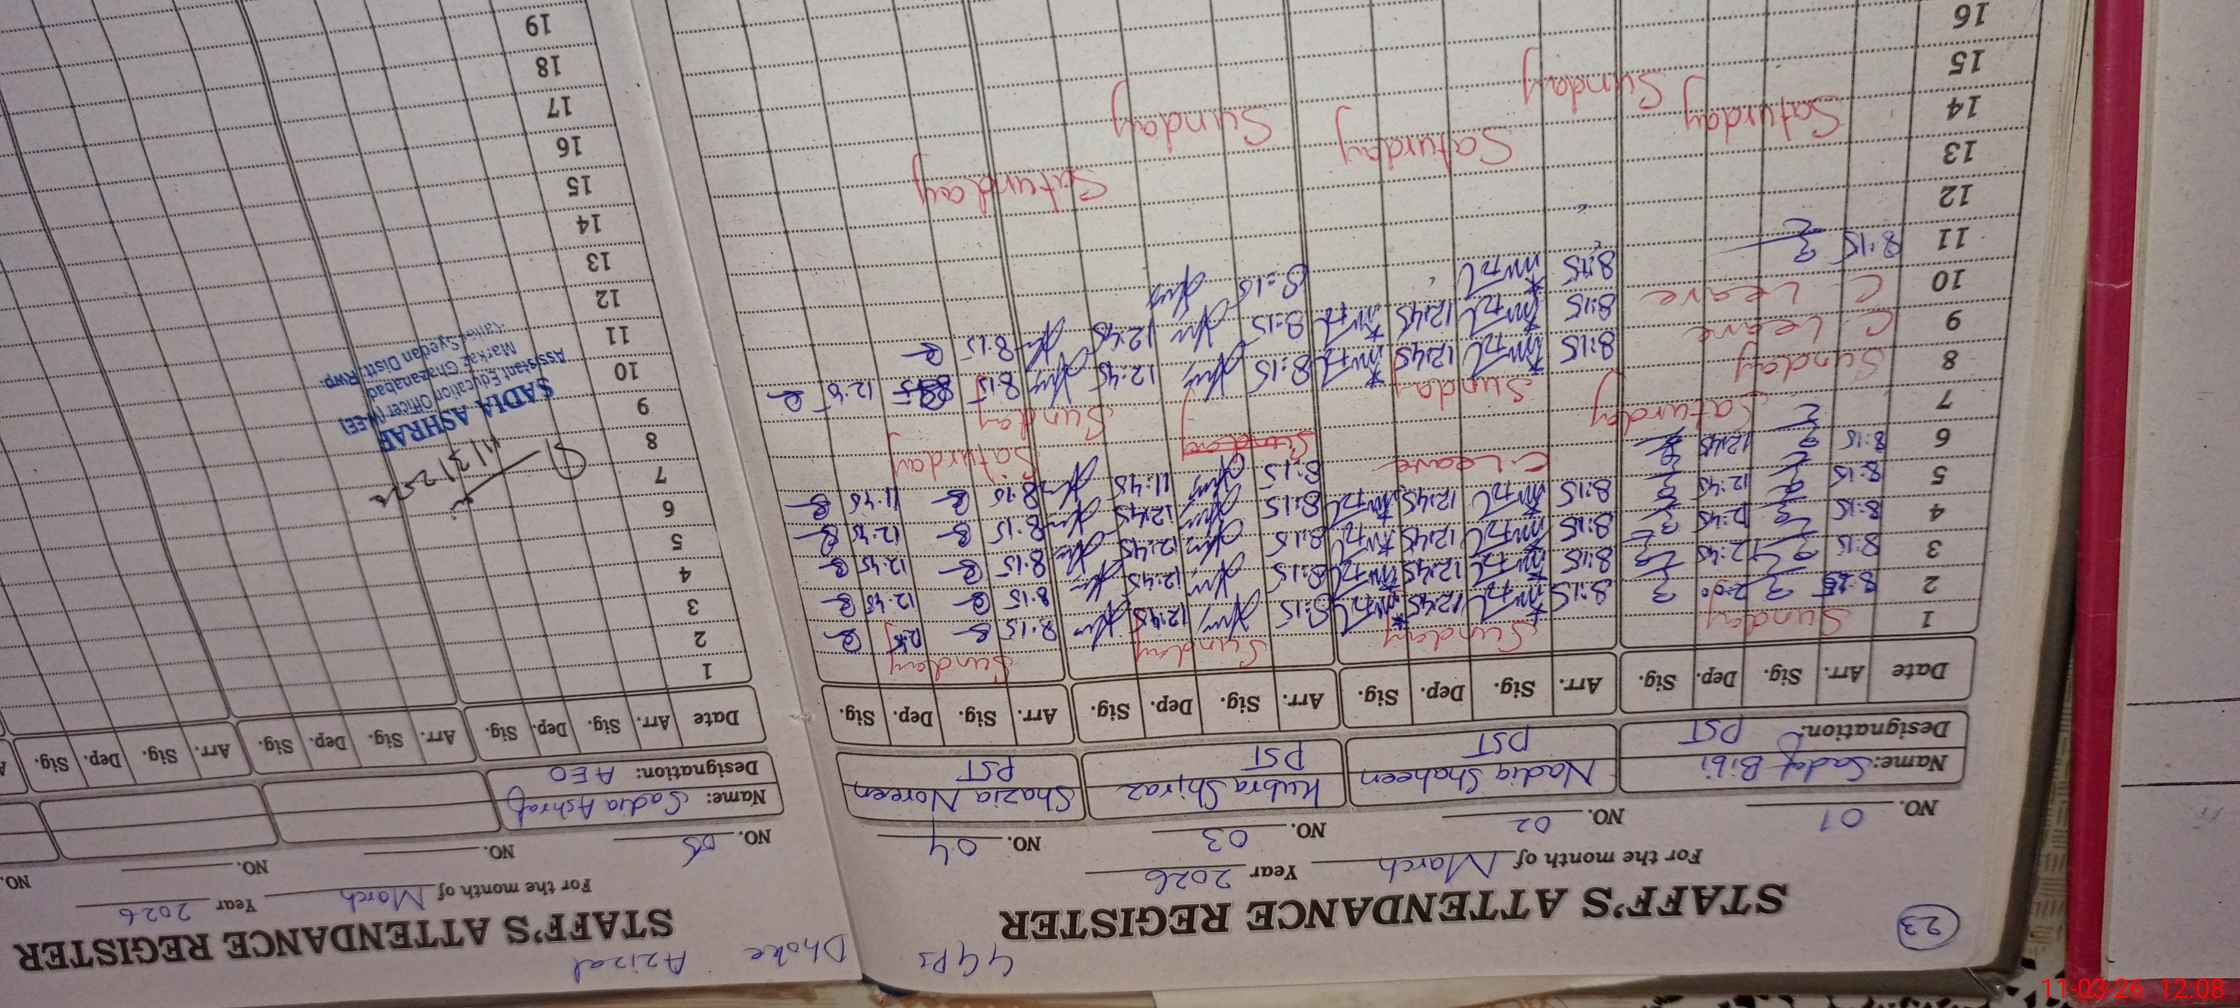 GGPS Dhoke Azizal
23
STAFF'S ATTENDANCE REGISTER
For the month of March Year 2026
NO. 01 NO. 02 NO. 03 NO. 04
Name: Sadaf Bibi Nadia Shaheen Kubra Shiraz Shazia Noreen
Designation: PST PST PST PST
Date Arr. Sig. Dep. Sig. Arr. Sig. Dep. Sig. Arr. Sig. Dep. Sig. Arr. Sig. Dep. Sig.
1 Sunday Sunday Sunday Sunday
2 8:15 2:00 8:15 12:45 8:15 12:45 8:15
3 8:15 12:45 8:15 12:45 8:15 12:45 8:15 12:45
4 8:15 12:45 8:15 12:45 8:15 12:45 8:15 12:45
5 8:15 12:45 8:15 12:45 8:15 12:45 8:15 12:45
6 8:15 12:45 C. Leave 8:15 11:45 8:15 11:45
7 Saturday Saturday
8 Sunday Sunday Sunday
9 C Leave 8:15 12:45 8:15 12:45 8:15
10 C Leave 8:15 12:45 8:15 12:45 8:15
11 8:15 8:15 8:15
12
13
14 Saturday Saturday Saturday
15 Sunday Sunday
16
STAFF'S ATTENDANCE REGISTER
For the month of March Year 2026
NO. 05 NO. NO. NO.
Name: Sadia Ashraf
Designation: AEO
Date Arr. Sig. Dep. Sig. Arr. Sig. Dep. Sig. Arr. Sig. Dep. Sig.
1
2
3
4
5
6
7
8
9
10
11
12
13
14
15
16
17
18
19
11/3/2026
SADIA ASHRAF
Assistant Education Officer (WEE)
Markaz Ghazanabad
Syedan Distt: Rwp.
11-03-26 12:08